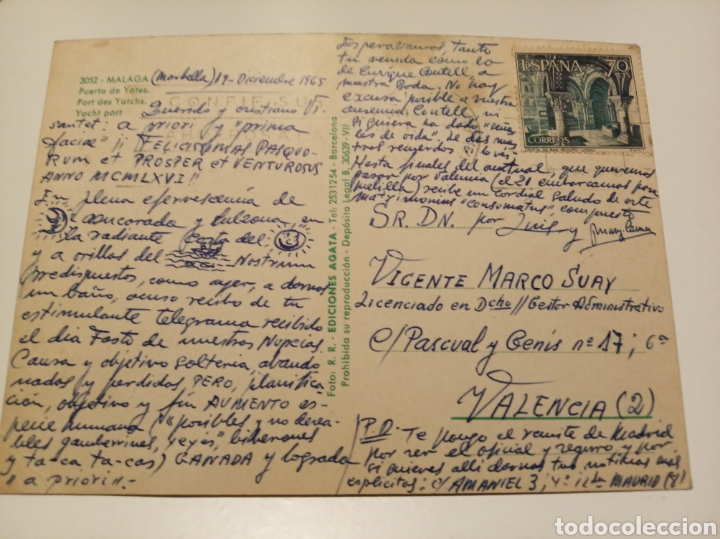 3052 - MALAGA
Puerto de Yates.
Port des Yatchs.
Yacht port
(Marbella) 19-Diciembre 1965
Querido y cristiano Vi-
santet: a priori y "prima
facie" ¡¡FELICISSIMAS PASQUO-
RUM et PROSPER et VENTUROSUS
ANNO MCMLXVI!!
En plena efervescencia de
ancorada y balcona, en
la radiante Costa del
y a orillas del Nostrum
predispuestos, como ayer, a darnos
un baño, acuso recibo de tu
estimulante telegrama recibido
el día Fasto de nuestras Nupcias.
Causa y objetivo soltería abando-
nados y perdidos, PERO, planifica-
ción, objetivo y fin AUMENTO es-
pecie humana (disponibles y no desea-
bles gamberrines, yeyes, biberones
y ta-ca ta-cas) GANADA y lograda
"a priori".-
Foto: R. R. - EDICIONES AGATA - Tel: 2531254 - Barcelona
Prohibida su reproducción - Depósito Legal B. 30639-VII
Esperabamos, tanto
tu venida como la
de Enrique Coutell a
nuestra Boda. No hay
excusa posible a vuestra
Coutell, ni
siquiera ha dado "seña-
les de vida". Le das nues-
tros recuerdos si le vés.
Hasta finales del actual, que queremos
pasar por Valencia (el 21 embarcamos para
Melilla) recibe un cordial saludo de este
matrimonio "consumatus" compuesto
por Luis y
ESPAÑA 70
CORREOS
SR. DN.
VICENTE MARCO SUAY
Licenciado en Dcho // Gestor Administrativo
c/ Pascual y Genís nº 17; 6ª
VALENCIA (2)
P.D. Te pongo el remite de Madrid
por ser el oficial y seguro y por
si quieres allí darnos tus noticias más
explícitas: c/ AMANIEL 3, 4º MADRID (8)
todocoleccion